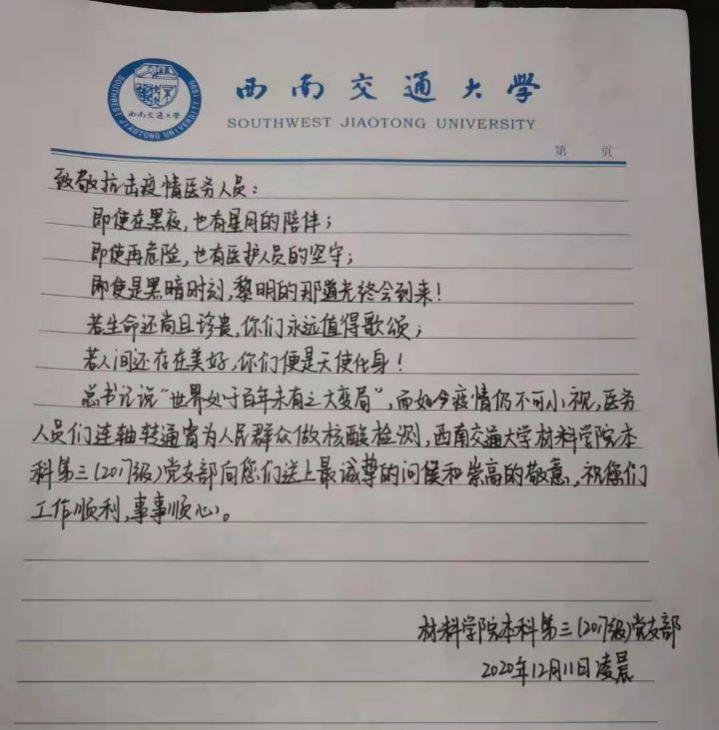 西南交通大学
SOUTHWEST JIAOTONG UNIVERSITY
西南交通大学
SOUTHWEST JIAOTONG UNIVERSITY
第 页
致敬抗击疫情医务人员：
即使在黑夜，也有星月的陪伴；
即使再危险，也有医护人员的坚守；
即使是黑暗时刻，黎明的那道光终会到来！
若生命还尚且珍贵，你们永远值得歌颂；
若人间还存在美好，你们便是天使化身！
总书记说“世界处于百年未有之大变局”，而如今疫情仍不可小视，医务
人员们连轴转通宵为人民群众做核酸检测，西南交通大学材料学院本
科第三（2017级）党支部向您们送上最诚挚的问候和崇高的敬意，祝您们
工作顺利，事事顺心。
材料学院本科第三（2017级）党支部
2020年12月11日凌晨